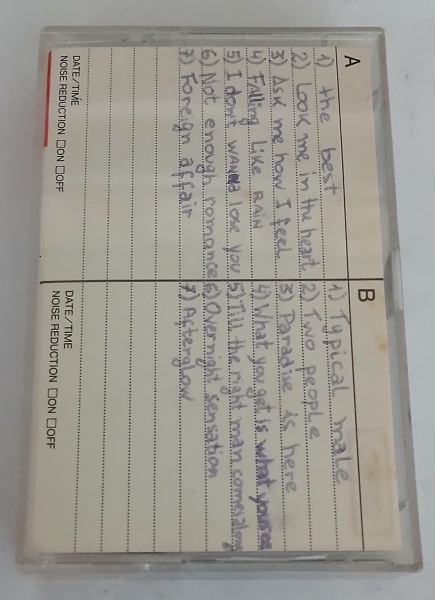 A
1) the best
2) Look me in the heart
3) Ask me how I feel
4) Falling like rain
5) I don't wanna lose you
6) Not enough romance
7) Foreign affair
DATE/TIME
NOISE REDUCTION □ON □OFF
B
1) Typical male
2) Two people
3) Paradise is here
4) What you get is what you see
5) Till the right man comes along
6) Overnight sensation
7) Afterglow
DATE/TIME
NOISE REDUCTION □ON □OFF